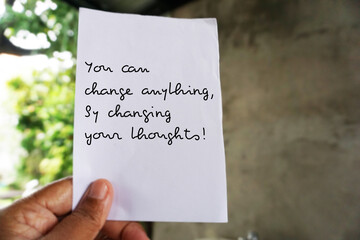 You can
change anything,
By changing
your thoughts!